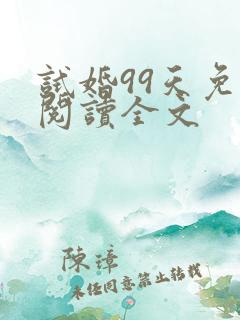 試婚99天免
閱讀全文
陳璋
未经同意禁止转载